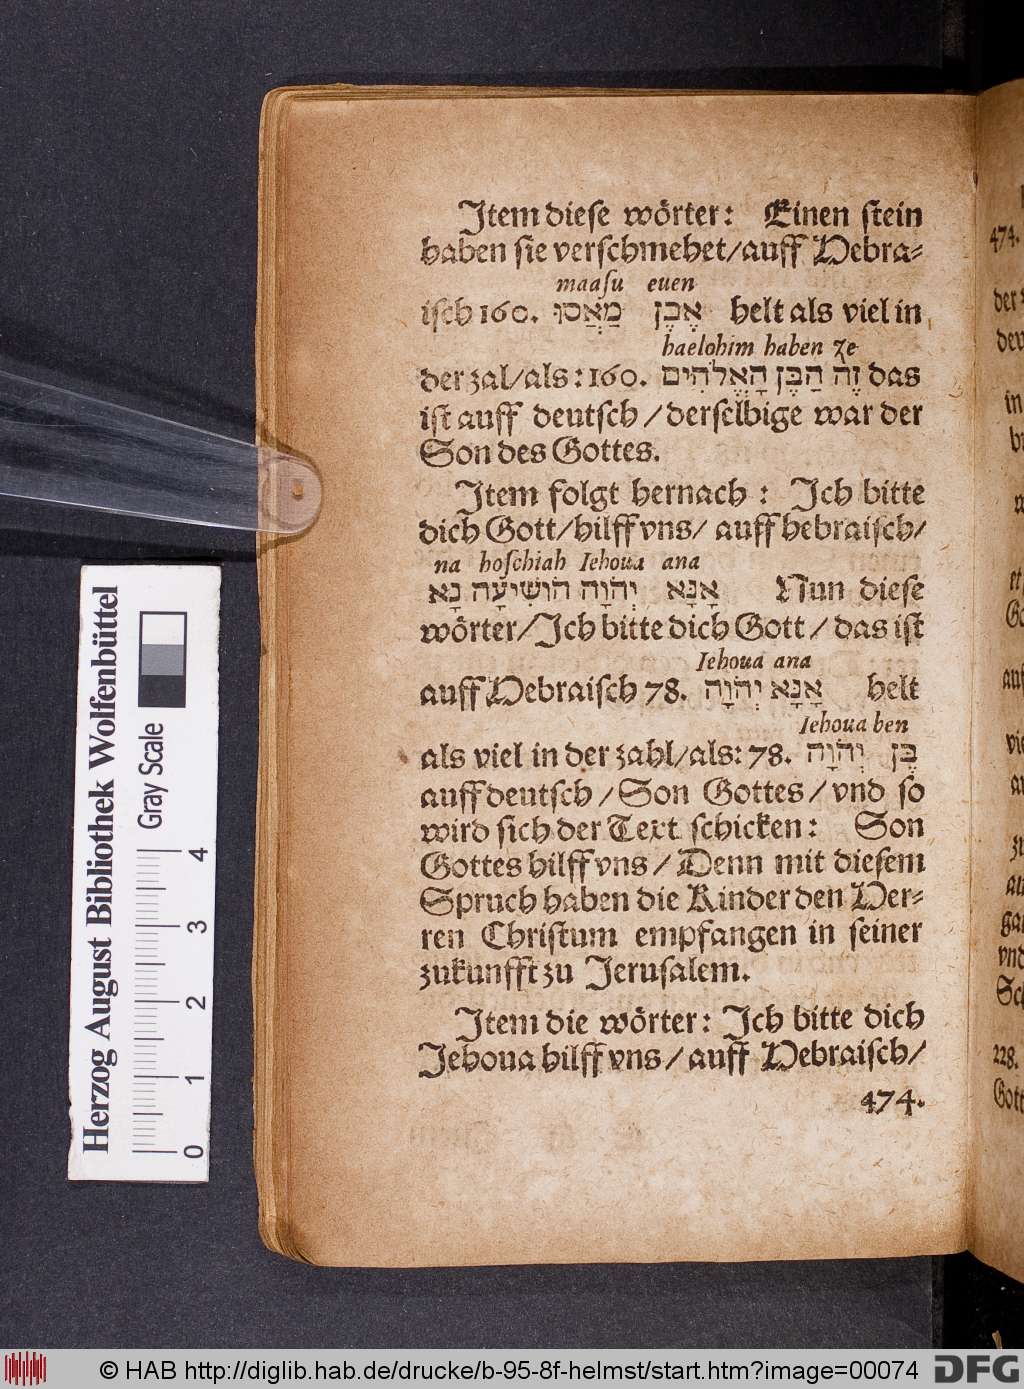 Item diese wörter: Einen stein
haben sie verschmehet/auff Hebra⸗
maasu euen
isch 160. מַאֲסוּ אֶבֶן helt als viel in
haelohim haben ze
der zal/als: 160. זֶה הַבֶּן הָאֱלֹהִים das
ist auff deutsch/derselbige war der
Son des Gottes.
Item folgt hernach: Ich bitte
dich Gott/hilff vns/ auff hebraisch/
na hoschiah Iehoua ana
אָנָּא יְהֹוָה הוֹשִׁיעָה נָא Nun diese
wörter/Ich bitte dich Gott/das ist
Iehoua ana
auff Hebraisch 78. אָנָּא יְהֹוָה helt
Iehoua ben
als viel in der zahl/als: 78. בֶּן יְהֹוָה
auff deutsch/Son Gottes/vnd so
wird sich der Text schicken: Son
Gottes hilff vns/Denn mit diesem
Spruch haben die Kinder den Her⸗
ren Christum empfangen in seiner
zukunfft zu Jerusalem.
Item die wörter: Ich bitte dich
Jehoua hilff vns/auff Hebraisch/
474.
474.
228.
Herzog August Bibliothek Wolfenbüttel
Gray Scale
0 1 2 3 4
© HAB http://diglib.hab.de/drucke/b-95-8f-helmst/start.htm?image=00074
DFG